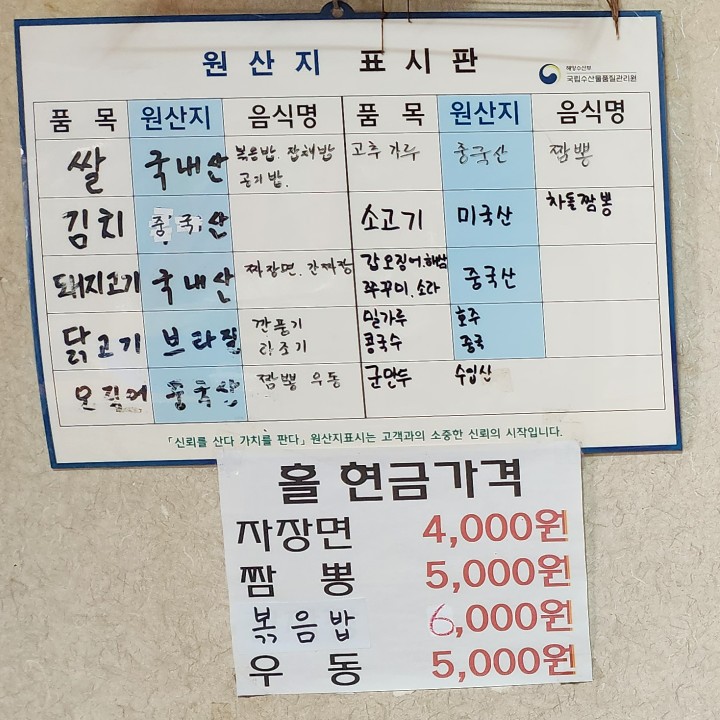 원산지 표시판
해양수산부
국립수산물품질관리원
품 목 원산지 음식명 품 목 원산지 음식명
쌀 국내산 볶음밥. 잡채밥 공기밥. 고추가루 중국산 짬뽕
김치 중국산 소고기 미국산 차돌짬뽕
돼지고기 국내산 짜장면. 간짜장 갑오징어.해삼 쭈꾸미.소라 중국산
닭고기 브라질 깐풍기 라조기 밀가루 콩국수 호주 중국
오징어 중국산 짬뽕 우동 군만두 수입산
「신뢰를 산다 가치를 판다」 원산지표시는 고객과의 소중한 신뢰의 시작입니다.
홀 현금가격
자장면 4,000원
짬 뽕 5,000원
볶음밥 6,000원
우 동 5,000원